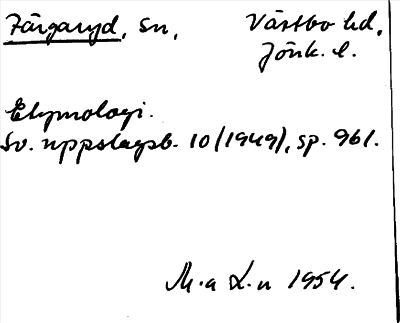 Färgaryd, sn, Västbo hd,
Jönk. l.
Etymologi.
Sv. uppslagsb. 10 (1949), sp. 961.
M.a L.n 1954.